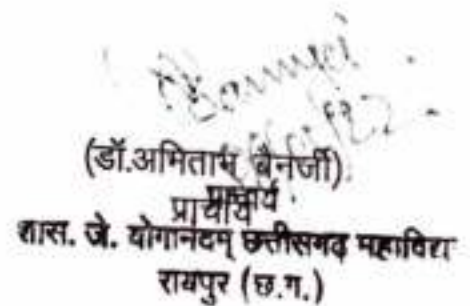 (डॉ.अमिताभ बैनर्जी)
प्राचार्य
प्राचार्य
शास. जे. योगानंदम् छत्तीसगढ़ महाविद्या
रायपुर (छ.ग.)